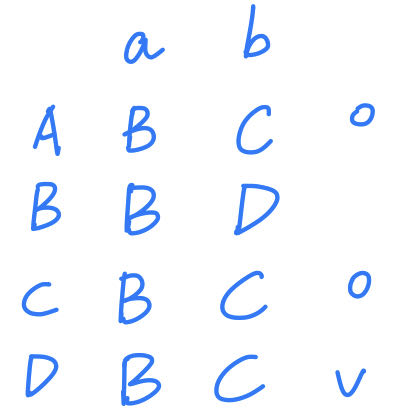 a b
A B C 0
B B D
C B C 0
D B C v